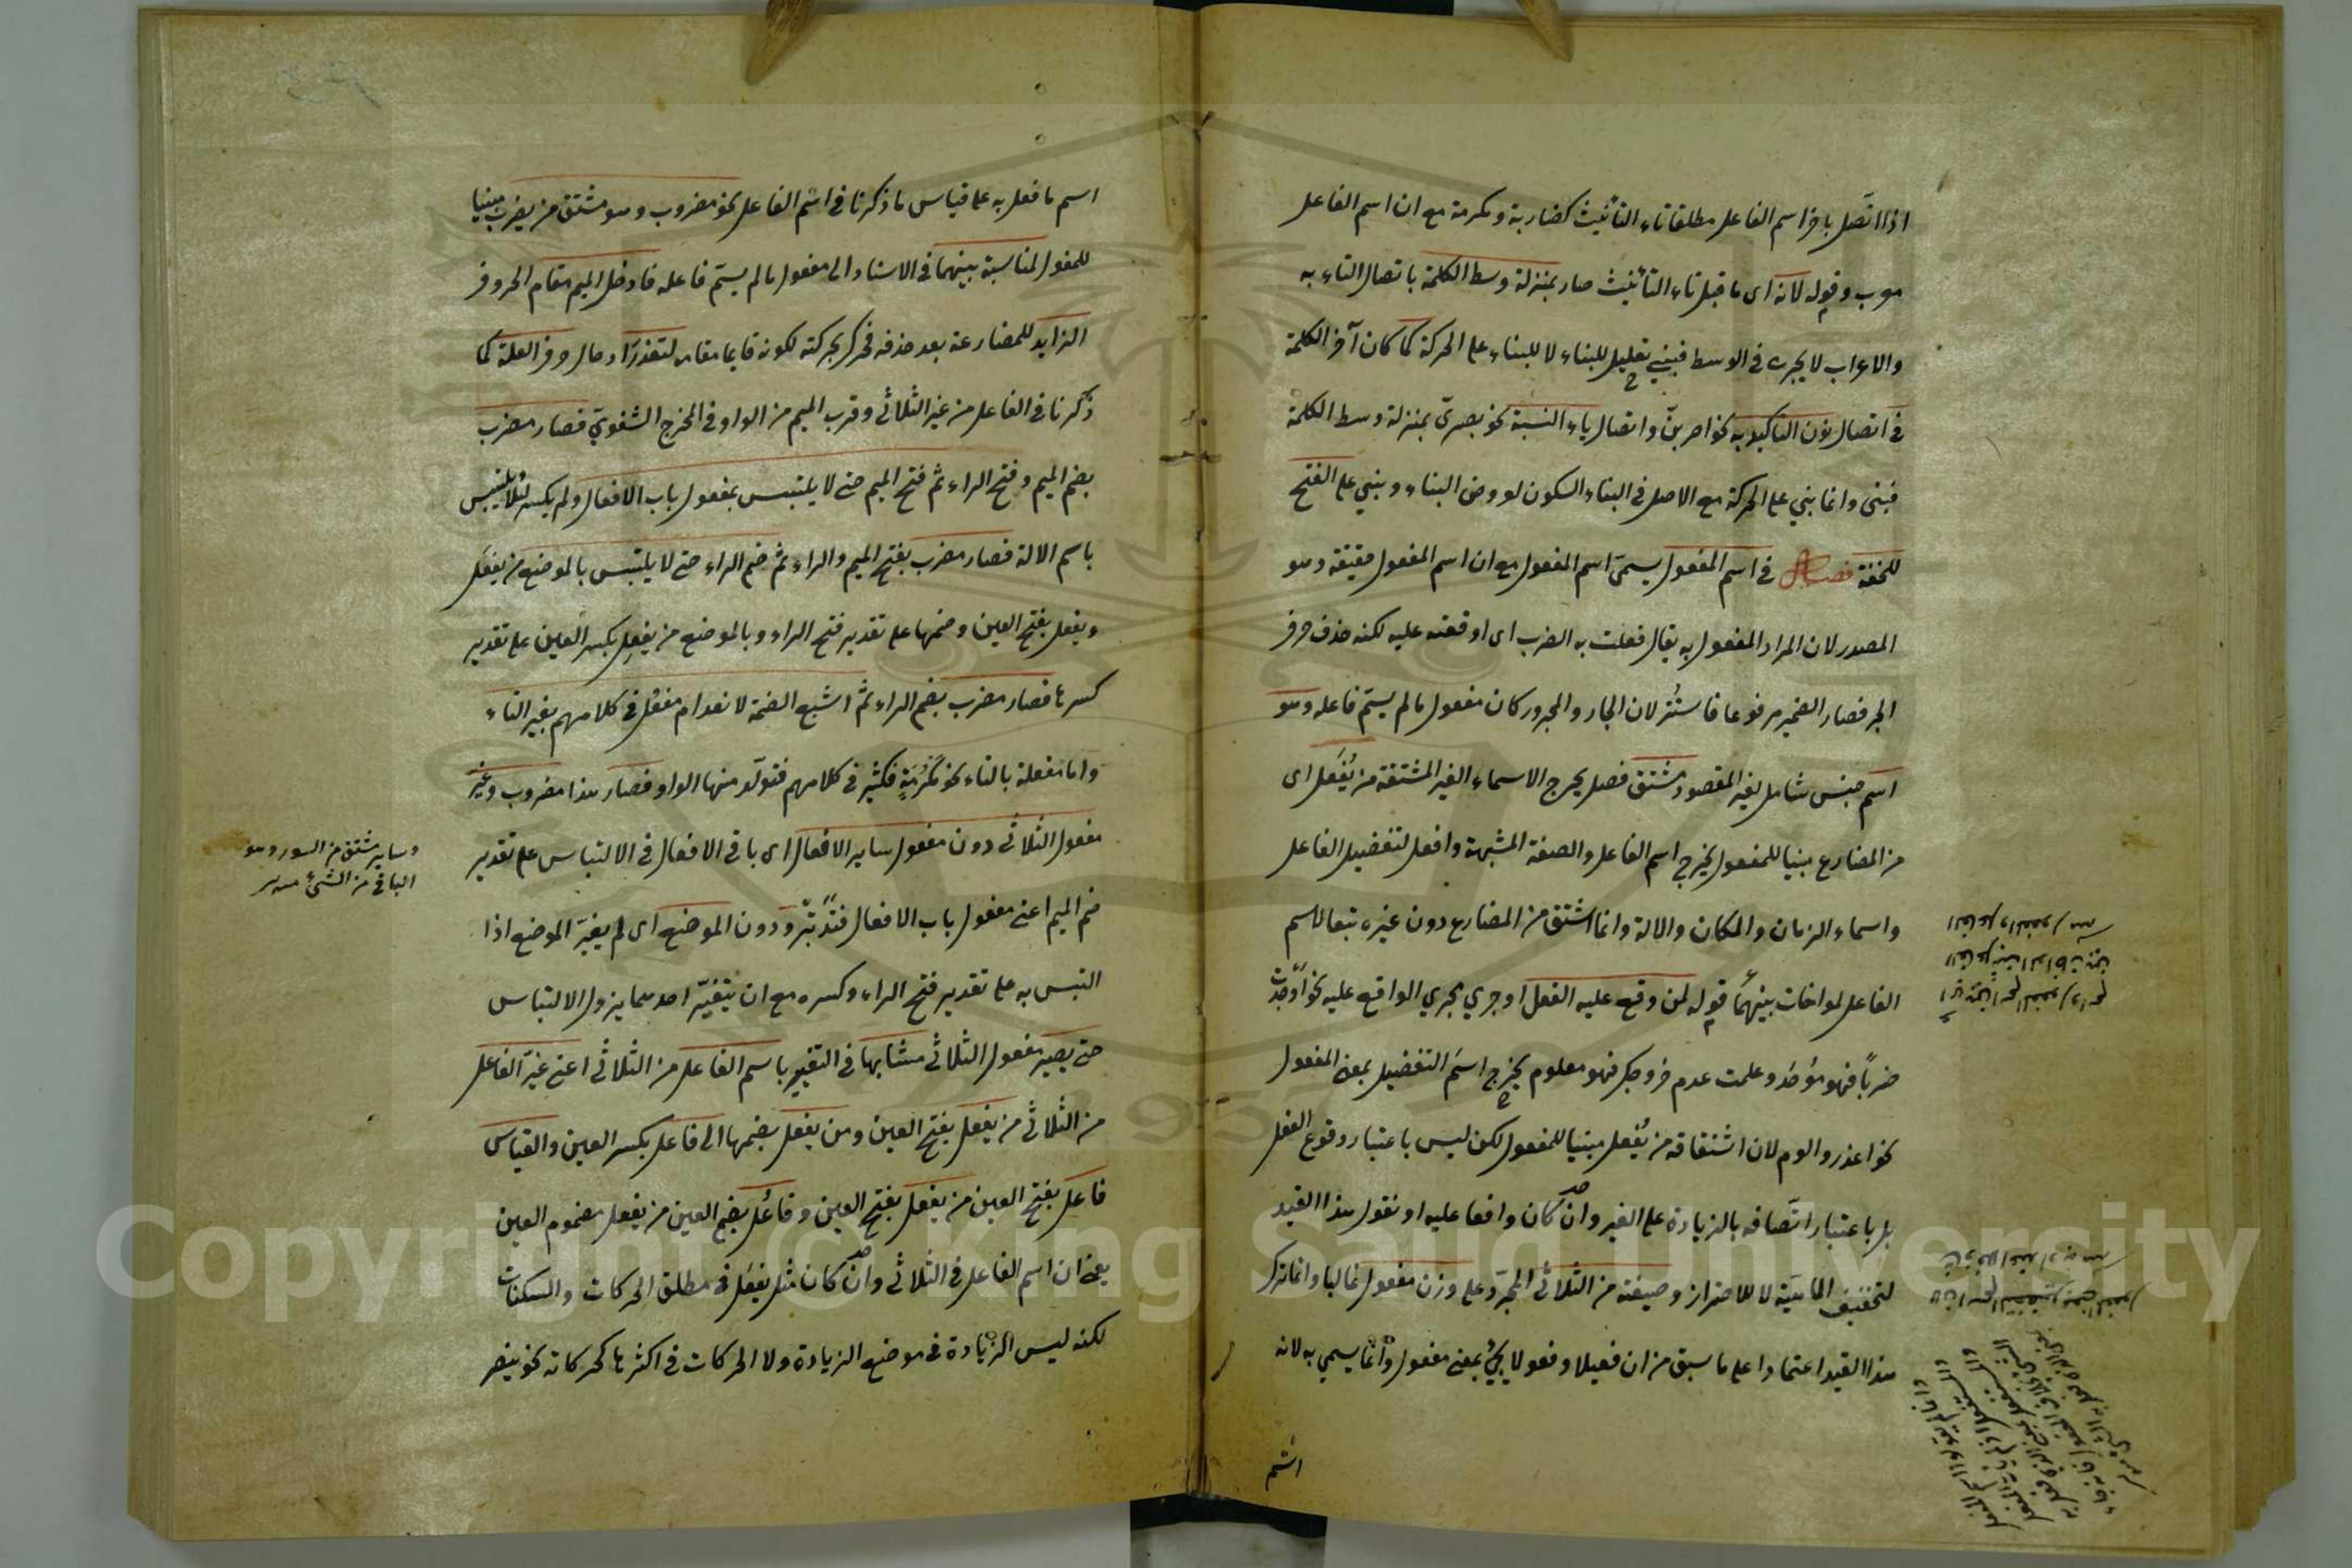 اذا اتصل باخر اسم الفاعل مطلقا تاء التأنيث كضاربة ومكرمة مع ان اسم الفاعل
معرب وقوله لانه اى ما قبل تاء التأنيث صار بمنزلة وسط الكلمة باتصال التاء به
والاعراب لا يجرى فى الوسط فبنى تعليل للبناء لا للبناء على الحركة كما كان آخر الكلمة
فى اتصال نون التاكيد به نحو اضربنّ واتصال ياء النسبة نحو بصرىّ بمنزلة وسط الكلمة
فبنى وانما بني على الحركة مع الاصل فى البناء السكون لعروض البناء وبني على الفتح
للخفة فصل فى اسم المفعول يسمى اسم المفعول مع ان اسم المفعول حقيقة وهو
المصدر لان المراد المفعول به يقال فعلت به الضرب اى اوقعته عليه لكنه حذف حرف
الجر فصار الضمير مرفوعا فاستتر لان الجار والمجرور كان مفعول مالم يسمّ فاعله وهو
اسم جنس شامل لغير المقصود مشتق فصل يخرج الاسماء الغير المشتقة من يُفعَل اى
من المضارع مبنيا للمفعول يخرج اسم الفاعل والصفة المشبهة وافعل لتفضيل الفاعل
واسماء الزمان والمكان والالة وانما اشتق من المضارع دون غيره تبعا لاسم
الفاعل لمواخات بينهما قوله لمن وقع عليه الفعل او جري مجري الواقع عليه نحو اوجدت
ضرباً فهو موجد وعلمت عدم خروجك فهو معلوم يخرج اسم التفضيل بمعنى المفعول
نحو اعذر والوم لان اشتقاقه من يُفعل مبنيا للمفعول لكن ليس باعتبار وقوع الفعل
بل باعتبار اتصافه بالزيادة على الغير وان كان واقعا عليه او نقول هذا القيد
لتحقيق الماهية لا للاحتراز وصيغته من الثلاثى المجرّد على وزن مفعول غالبا وانما ترك
هذا القيد اعتمادا على ما سبق من ان فعيلا وفعولا يجئ بمعنى مفعول وانما يسمي به لانه
اسم
اسم ما فعل به على قياس ما ذكرنا فى اسم الفاعل نحو مضروب وهو مشتق من يضرب مبنيا
للمفعول لمناسبة بينهما فى الاسناد الى مفعول مالم يسمّ فاعله فادخل الميم مقام الحرف
الزايد للمضارعة بعد حذفه فحرك بحركته لكونه قايما مقامه لتعذر ادخال حروف العلة كما
ذكرنا فى الفاعل من غير الثلاثى وقرب الميم من الواو فى المخرج الشفوىّ فصار مضرب
بضم الميم وفتح الراء ثم فتح الميم حتى لا يلتبس بمفعول باب الافعال ولم يكسر لئلا يلتبس
باسم الالة فصار مضرب بفتح الميم والراء ثم ضم الراء حتى لا يلتبس بالموضع من يفعَل
ويفعل بفتح العين وضمها على تقدير فتح الراء وبالموضع من يفعِل بكسر العين على تقدير
كسرها فصار مضرب بضم الراء ثم اشبع الضمة لانعدام مفعُل فى كلامهم بغير التاء
واما مفعلة بالتاء نحو مكرُمَةٍ فكثير فى كلامهم فتولّد منها الواو فصار هذا مضروب وغير
مفعول الثلاثى دون مفعول ساير الافعال اى باقى الافعال فى الالتباس على تقدير
ضم الميم اعنى مفعول باب الافعال فتدبّر ودون الموضع اى لم يغيّر الموضع اذا
التبس به على تقدير فتح الراء وكسره مع ان بتغيّر احدهما يزول الالتباس
حتى يصير مفعول الثلاثى مشابها فى التغير باسم الفاعل من الثلاثى اعنى غيّر الفاعل
من الثلاثى من يفعل بفتح العين ومن يفعل بضمها الى فاعل بكسر العين والقياس
فاعل بفتح العين من يفعل بفتح العين وفاعُل بضم العين من يفعل مضموم العين
يعنى ان اسم الفاعل فى الثلاثى وان كان مثل يفعَل فى مطلق الحركات والسكنات
لكنه ليس الزيادة فى موضع الزيادة ولا الحركات فى اكثرها كحركاته نحو ينصر
وساير مشتق من السور وهو
الباقى من الشئ
Copyright © King Saud University